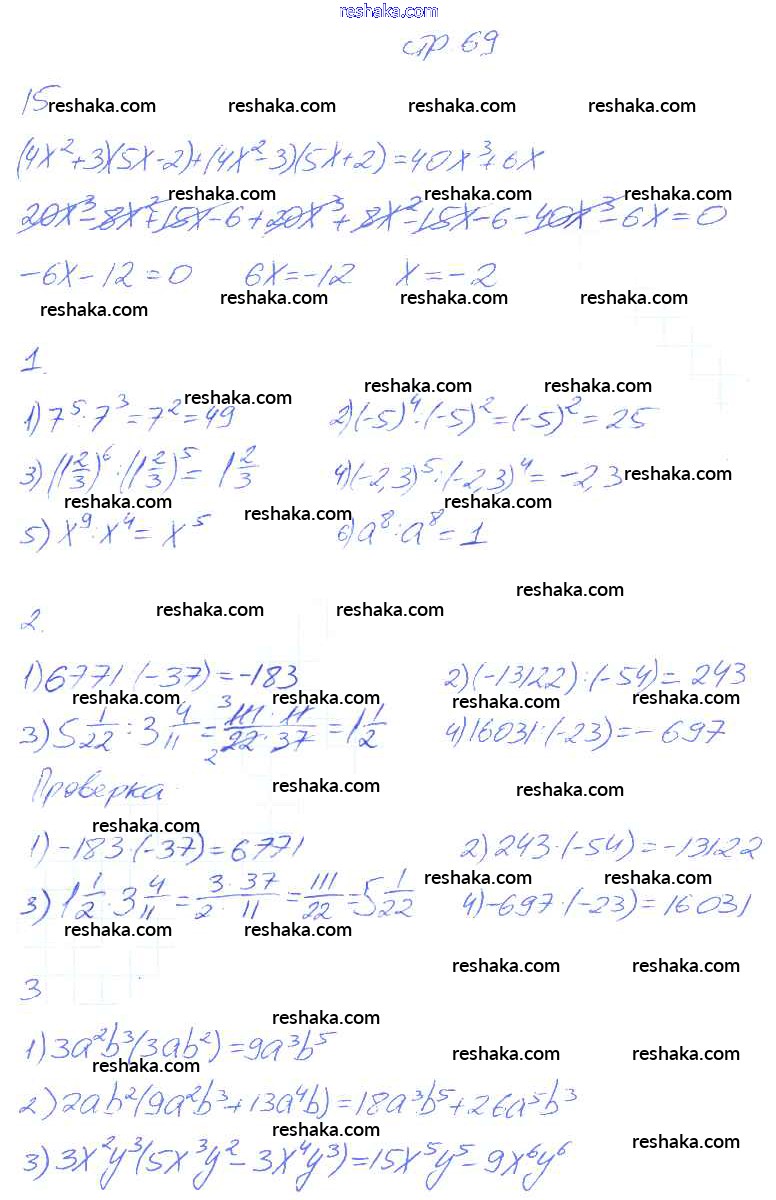 reshaka.com
стр. 69
15 reshaka.com reshaka.com reshaka.com reshaka.com
(4x²+3)(5x-2)+(4x²-3)(5x+2)=40x³+6x
reshaka.com reshaka.com reshaka.com
20x³-8x²+15x-6+20x³+8x²-15x-6-40x³-6x=0
-6x-12=0 6x=-12 x=-2
reshaka.com reshaka.com reshaka.com reshaka.com
1.
reshaka.com reshaka.com
1) 7⁵:7³=7²=49 2) (-5)⁴:(-5)²=(-5)²=25
3) (1 2/3)⁶:(1 2/3)⁵=1 2/3 4) (-2,3)⁵:(-2,3)⁴=-2,3 reshaka.com
reshaka.com reshaka.com reshaka.com
5) x⁹:x⁴=x⁵ 6) a⁸:a⁸=1
reshaka.com
2. reshaka.com reshaka.com
1) 6771:(-37)=-183 2) (-13122):(-54)=243
reshaka.com reshaka.com reshaka.com reshaka.com
3) 5 1/22 : 3 4/11 = 3 111·11/2 22·37 = 1 1/2 4) 16031:(-23)=-697
Проверка reshaka.com reshaka.com
reshaka.com
1) -183·(-37)=6771 2) 243·(-54)=-13122
reshaka.com reshaka.com
3) 1 1/2·3 4/11=3·37/2·11=111/22=5 1/22 4) -697·(-23)=16031
reshaka.com reshaka.com
reshaka.com reshaka.com
3
reshaka.com
1) 3a²b³(3ab²)=9a³b⁵ reshaka.com reshaka.com
reshaka.com
2) 2ab²(9a²b³+13a⁴b)=18a³b⁵+26a⁵b³
reshaka.com reshaka.com
3) 3x²y³(5x³y²-3x⁴y³)=15x⁵y⁵-9x⁶y⁶